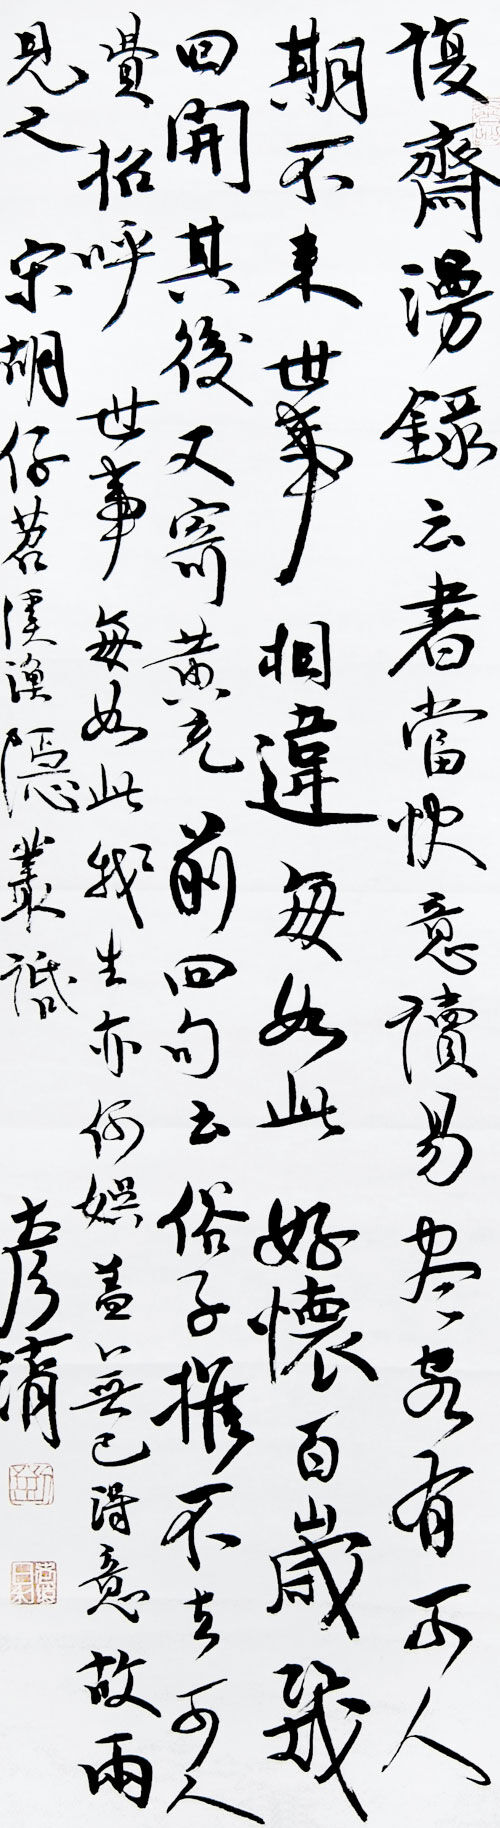 復齋漫錄云書當快意讀易盡客有可人
期不來世事相違每如此好懷百歲幾
回開其後又寄黃充前四句云俗子推不去可人
費招呼世事每如此我生亦何娛蓋無己得意故兩
見之 宋胡仔苕溪漁隱叢話